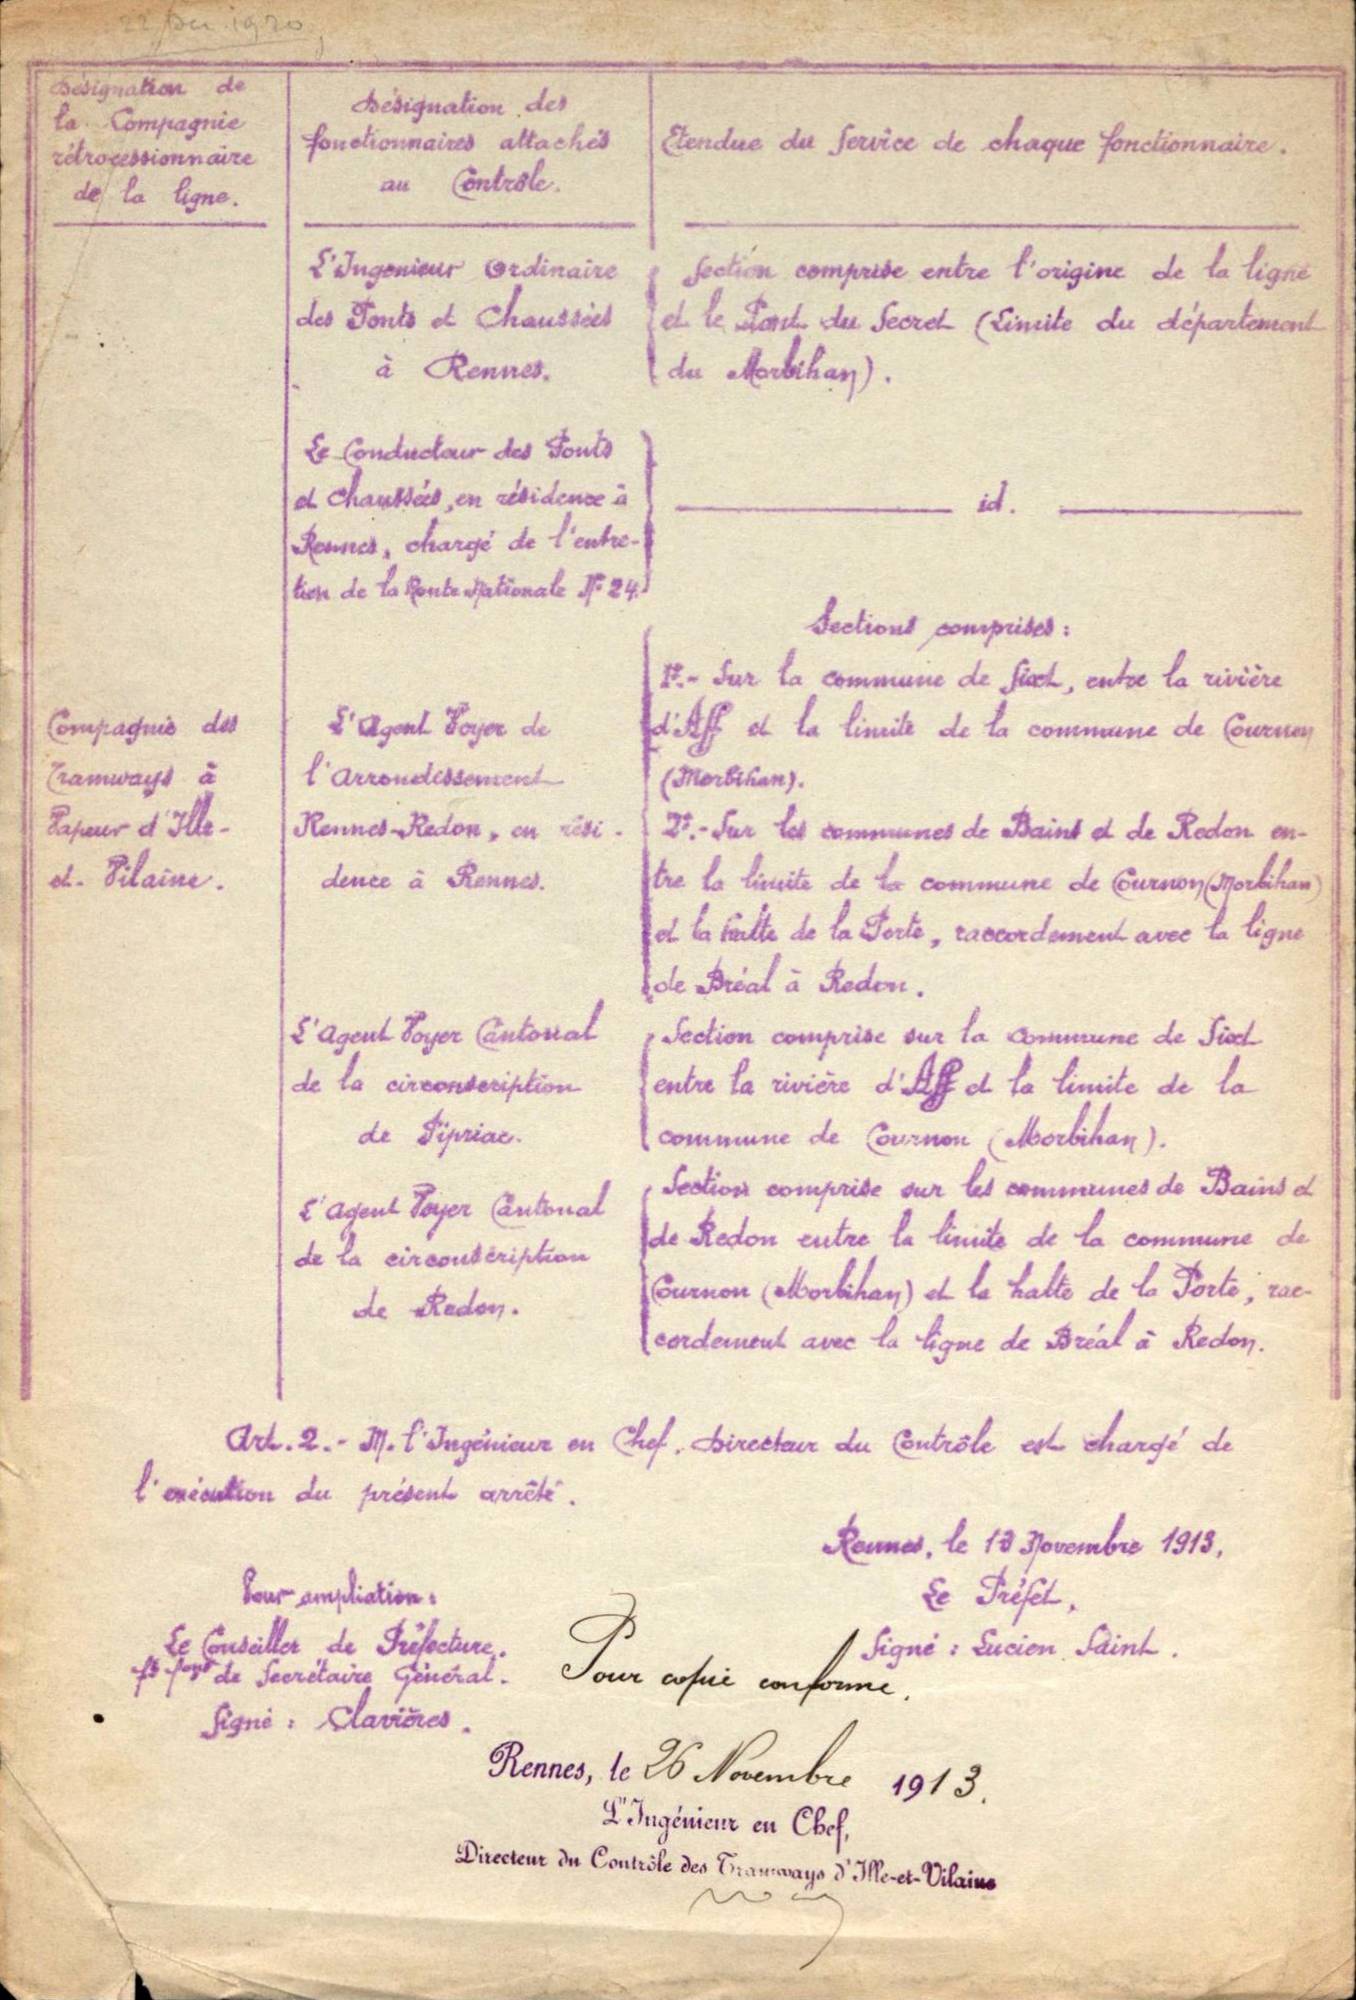 22 Dec. 1920
Désignation de
la Compagnie
rétrocessionnaire
de la ligne.
Désignation des
fonctionnaires attachés
au Contrôle.
Etendue du Service de chaque fonctionnaire.
L'Ingenieur Ordinaire
des Ponts et Chaussées
à Rennes.
Section comprise entre l'origine de la ligne
et le Pont du Secret (Limite du département
du Morbihan).
Le Conducteur des Ponts
et Chaussées, en résidence à
Rennes, chargé de l'entre-
tien de la Route Nationale N° 24.
id.
Compagnie des
Tramways à
Vapeur d'Ille-
et-Vilaine.
L'Agent Voyer de
l'Arrondissement
Rennes-Redon, en rési-
dence à Rennes.
Sections comprises:
1°.- Sur la commune de Sixt, entre la rivière
d'Aff et la limite de la commune de Cournon
(Morbihan).
2°.- Sur les communes de Bains et de Redon en-
tre la limite de la commune de Cournon (Morbihan)
et la halte de la Porte, raccordement avec la ligne
de Bréal à Redon.
L'Agent Voyer Cantonal
de la circonscription
de Pipriac.
Section comprise sur la commune de Sixt
entre la rivière d'Aff et la limite de la
commune de Cournon (Morbihan).
L'Agent Voyer Cantonal
de la circonscription
de Redon.
Section comprise sur les communes de Bains et
de Redon entre la limite de la commune de
Cournon (Morbihan) et la halte de la Porte, rac-
cordement avec la ligne de Bréal à Redon.
Art. 2.- M. l'Ingénieur en Chef, Directeur du Contrôle est chargé de
l'exécution du présent arrêté.
Rennes, le 18 Novembre 1913,
Le Préfet,
Signé : Lucien Saint.
Pour ampliation :
Le Conseiller de Préfecture.
de Secrétaire Général.
Signé : Clavières.
Pour copie conforme.
Rennes, le 26 Novembre 1913.
L'Ingénieur en Chef,
Directeur du Contrôle des Tramways d'Ille-et-Vilaine